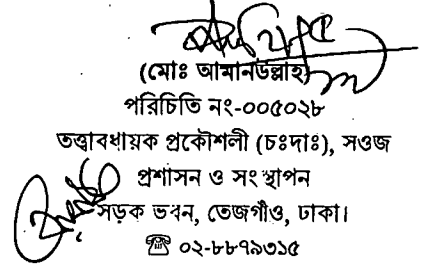 (মোঃ আমানউল্লাহ)
পরিচিতি নং-০০৫০২৮
তত্ত্বাবধায়ক প্রকৌশলী (চঃদাঃ), সওজ
প্রশাসন ও সংস্থাপন
সড়ক ভবন, তেজগাঁও, ঢাকা।
☎ ০২-৮৮৭৯৩১৫